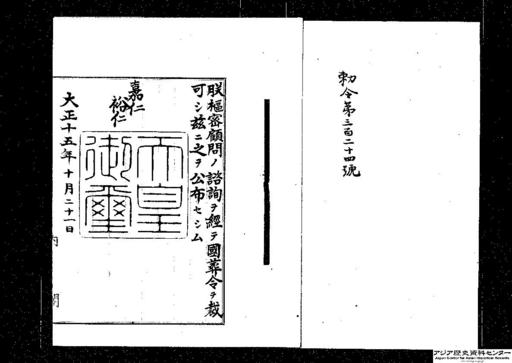 勅令第三百二十四號
朕樞密顧問ノ諮詢ヲ經テ國葬令ヲ裁
可シ茲ニ之ヲ公布セシム
嘉仁
裕仁
天皇
御璽
大正十五年十月二十一日
内閣
アジア歴史資料センター
Japan Center for Asian Historical Records